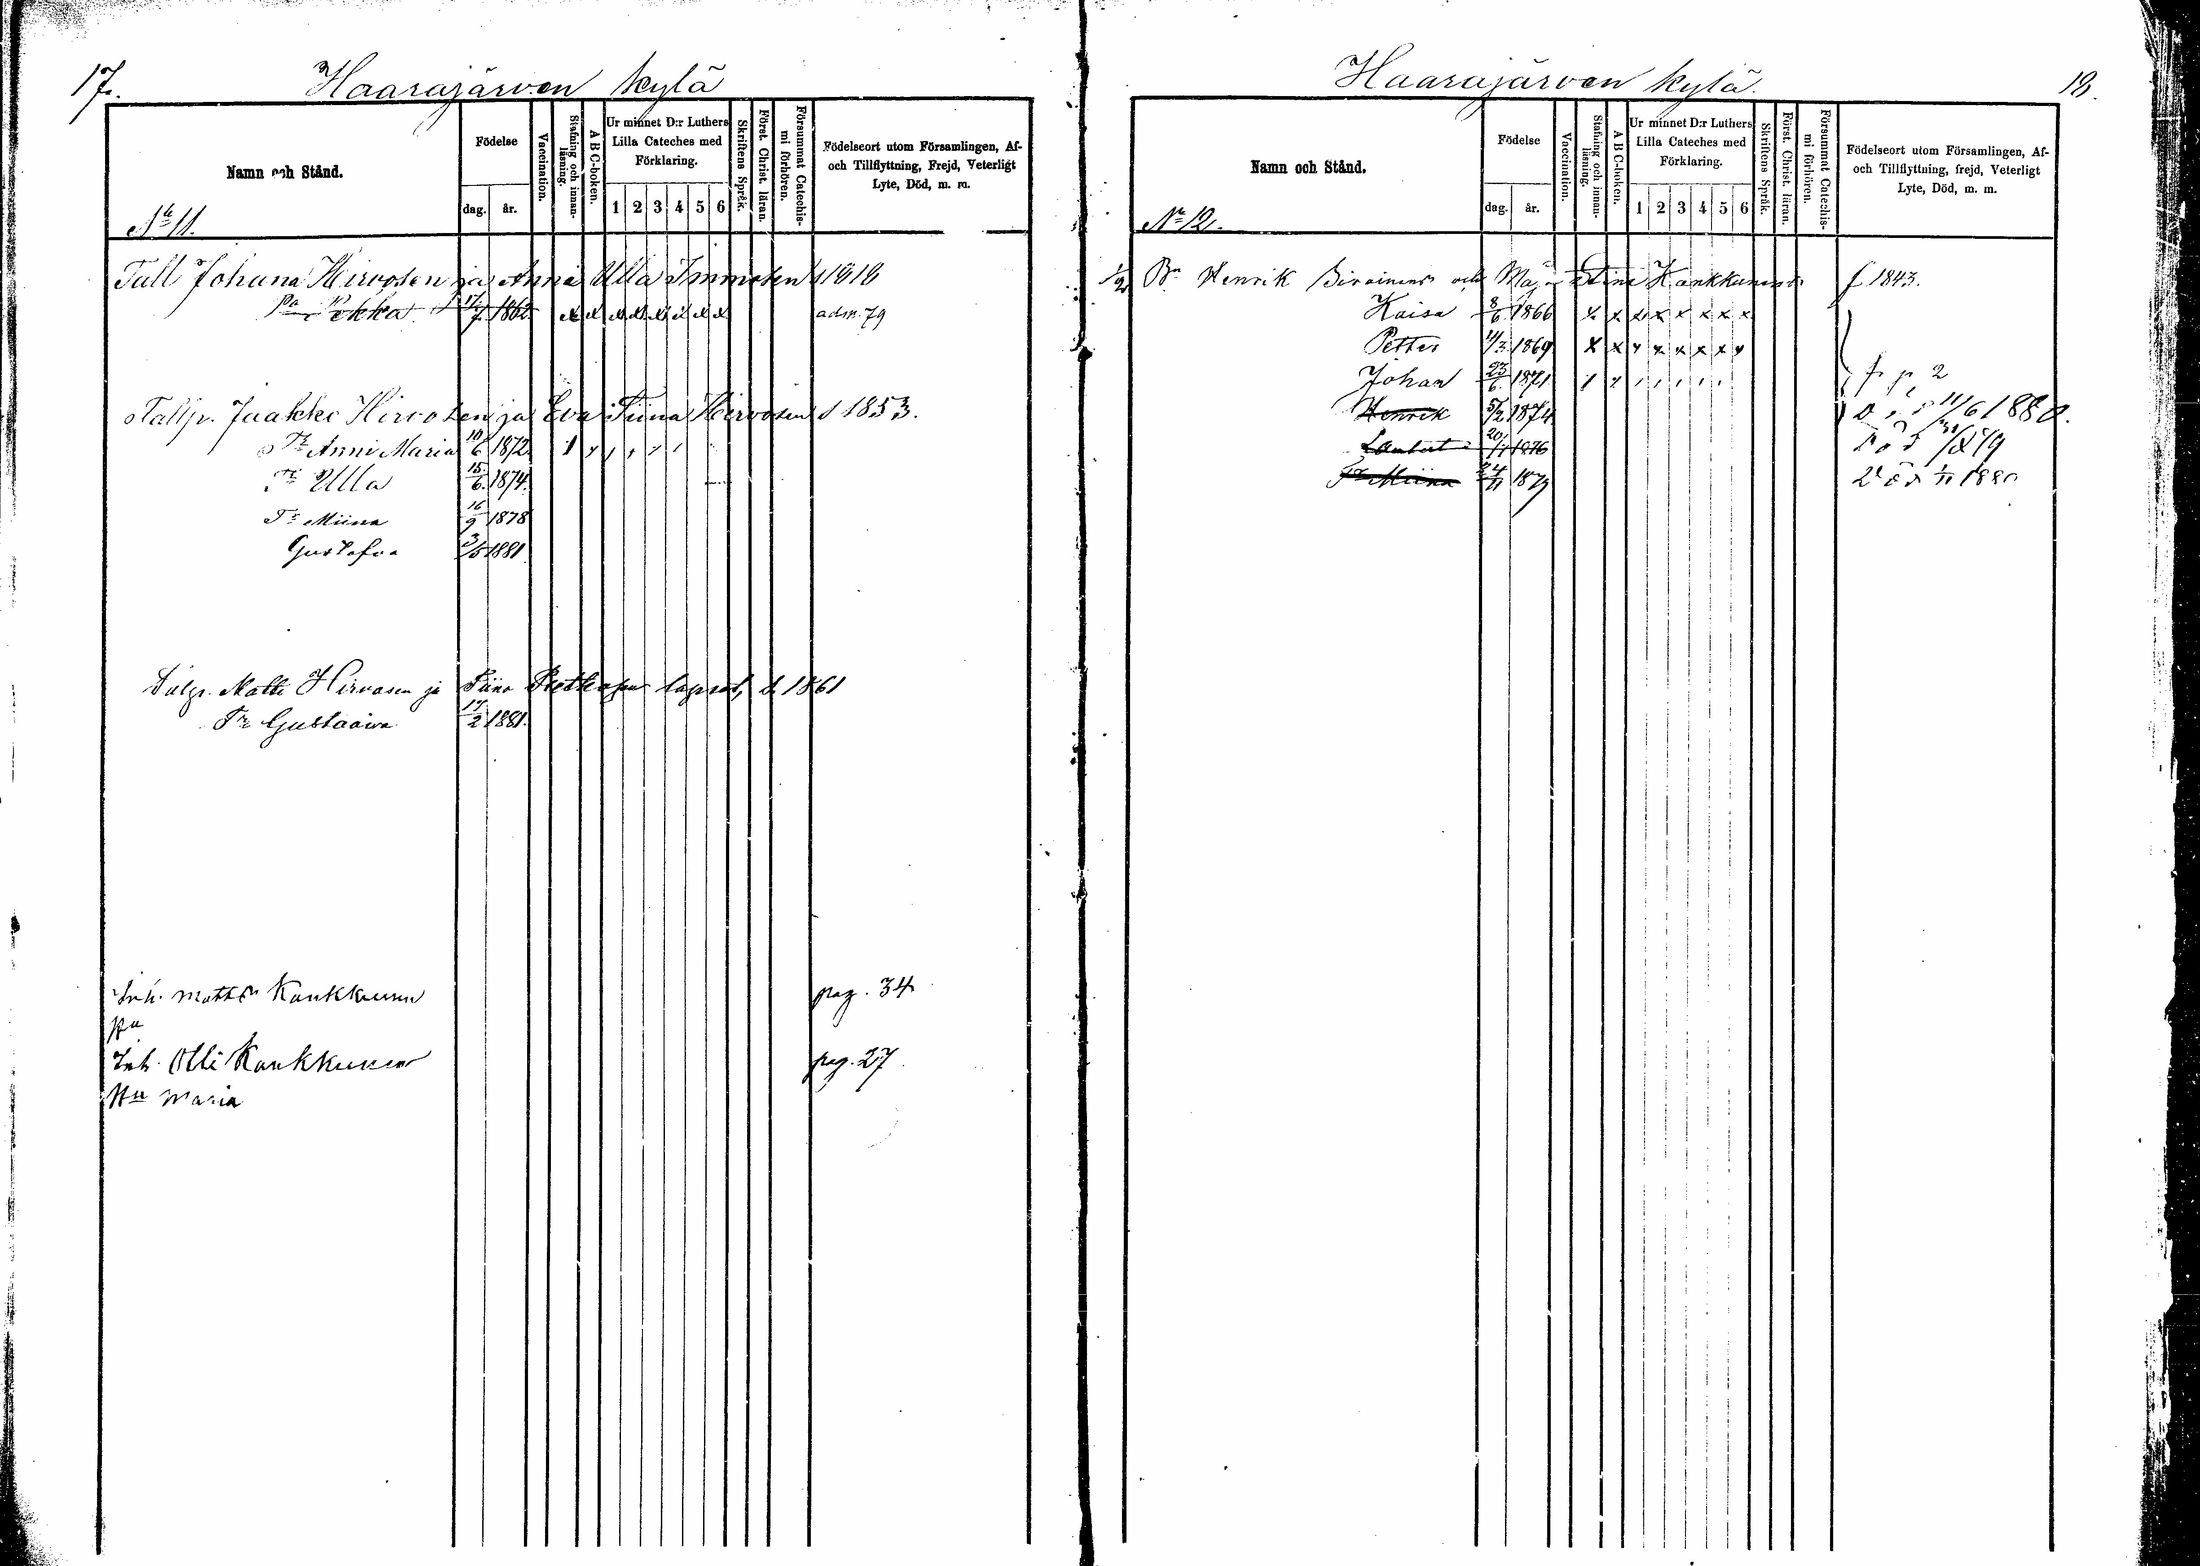 17.
Haarajärven kylä
Namn och Stånd.
Födelse
dag.
år.
Vaccination.
Stafning och innanläsning.
ABC-boken.
Ur minnet D:r Luthers
Lilla Cateches med
Förklaring.
1 2 3 4 5 6
Skriftens Språk.
Först. Christ. läran.
Försummat Catechismi förhören.
Födelseort utom Församlingen, Af-
och Tillflyttning, Frejd, Veterligt
Lyte, Död, m. m.
No 11.
Tall Johana Hirvosen ja Anna Ulla Immosen s 1818
Pekka 17/7 1862 adm. 79
Tallp. Jaakko Hirvosen ja Eva Tiina Hirvosen s 1853.
Tr Anni Maria 10/6 1872
Tr Ulla 15/6 1874
Tr Miina 16/9 1878
Gustafva 3/5 1881
Matti Hirvosen ja Tiina lapset, s. 1861
Tr Gustaava 17/2 1881.
Inh. Kankkunen pag. 34
Hu
Inh. Olli Kankkunen pag. 27
Hu Maria
Haarajärven kylä.
18.
Namn och Stånd.
Födelse
dag.
år.
Vaccination.
Stafning och innanläsning.
ABC-boken.
Ur minnet D:r Luthers
Lilla Cateches med
Förklaring.
1 2 3 4 5 6
Skriftens Språk.
Först. Christ. läran.
Försummat Catechismi förhören.
Födelseort utom Församlingen, Af-
och Tillflyttning, frejd, Veterligt
Lyte, Död, m. m.
No 12.
1/2 Bn Henrik och Maja Stina f 1843.
Kaisa 8/6 1866
Petter 11/3 1869
Johan 23/6 1871
Henrik 5/2 1874 11/6 1880.
Lambert 1876
Tr Miina 24/11 1879 död 1/11 1880